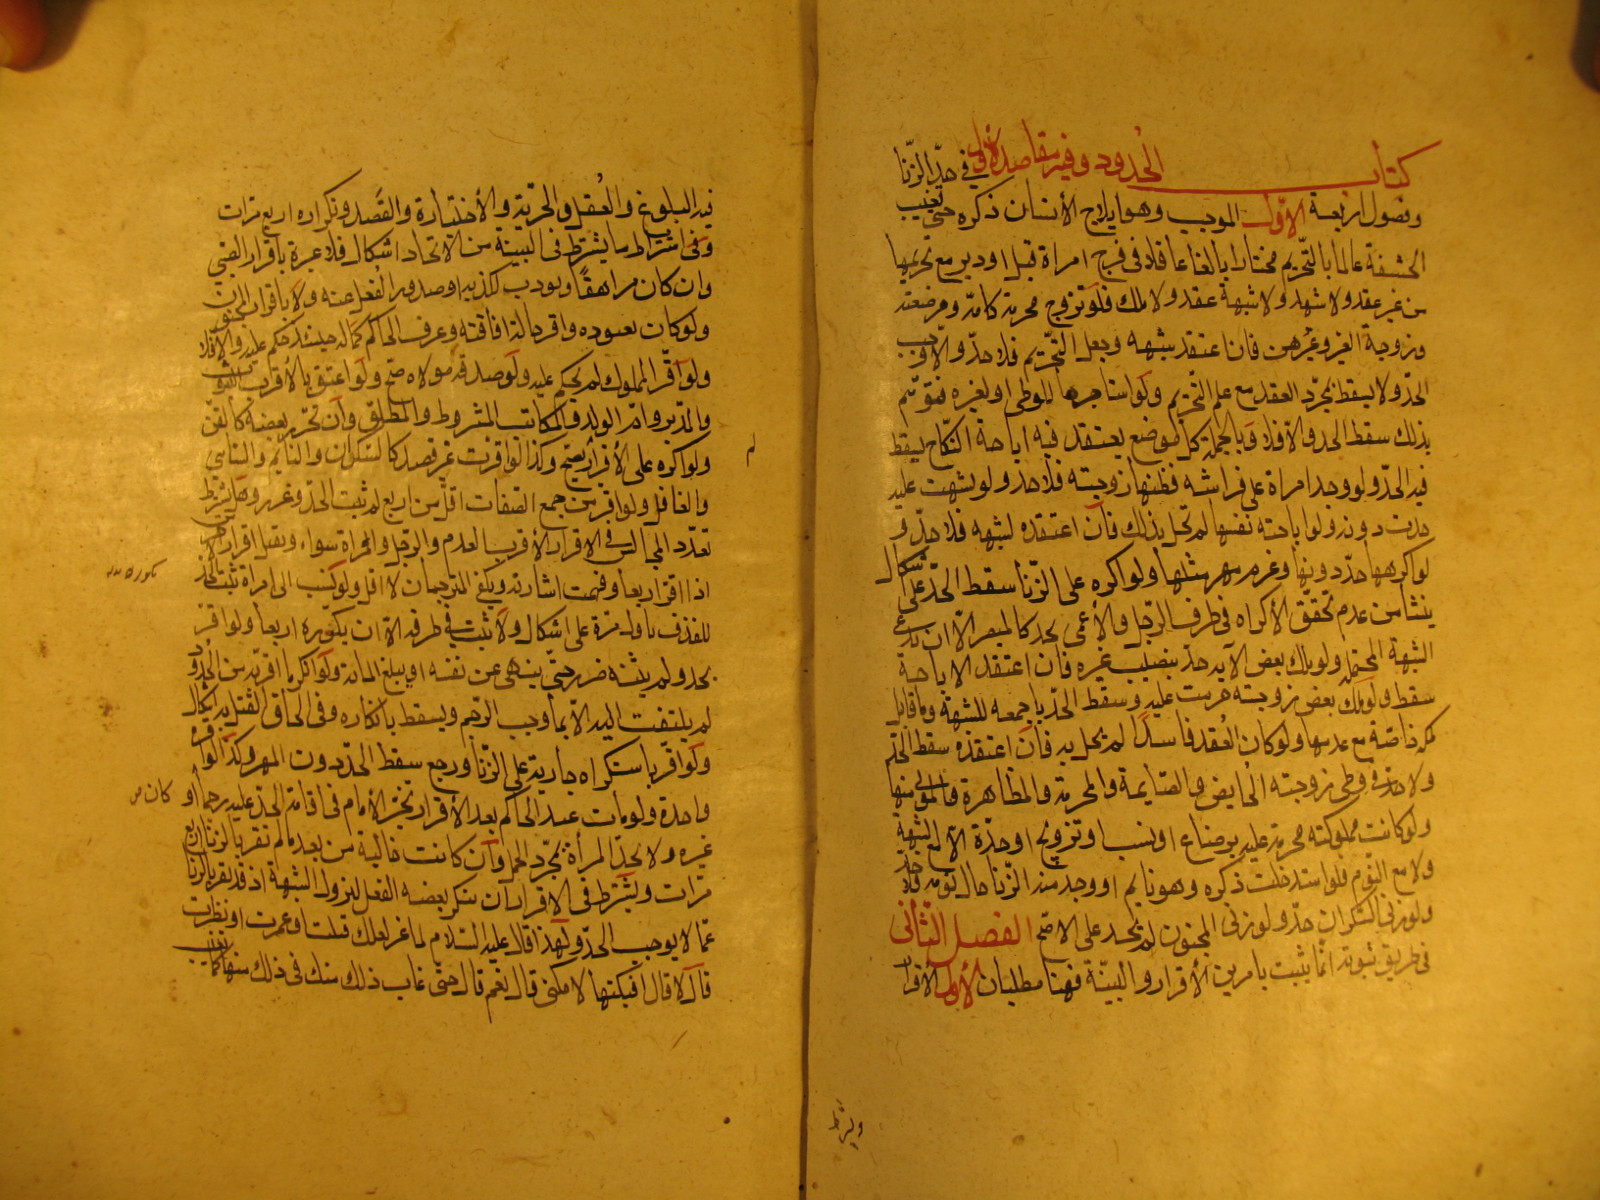 كتاب الحدود وفيه مقاصد الأول في حدّ الزّنا
وفصول اربعة الأوّل الموجب وهو ايلاج الأنسان ذكره حتى تغيب
الحشفة عالما بالتّحريم مختارا بالغا عاقلا في فرج امراة قبل او دبر مع تحريمها
من غير عقد ولا شبهة عقد ولا ملك فلو تزوج محرمة كامّه ومرضعته
وزوجة الغير وغيرهن فان اعتقد شبهه وجهل التّحريم فلا حدّ والّا وجب
الحدّ ولا يسقط بمجرّد العقد مع علم التّحريم ولو استاجرها للوطى او لغيره فتوهّم
بذلك سقط الحد والّا فلا وبالجملة كل موضع يعتقد فيه اباحة النّكاح يسقط
فيه الحدّ ولو وجد امراة على فراشه فظنها زوجته فلا حد ولو تشبهت عليه
حدت دونه ولو اباحته نفسها لم تحل بذلك فان اعتقده لشبهه فلا حدّ و
لو اكرهها حدّ دونها وغرم مهر مثلها ولو اكره على الزّنا سقط الحدّ على اشكال
ينشأ من عدم تحقّق الأكراه في طرف الرّجل والأعمى يحد كالمبصر الّا ان يدعى
الشبهة المحتملة ولو ملك بعض الأمة حدّ بنصيب غيره فان اعتقد الاباحة
سقط ولو ملك بعض زوجته حرمت عليه وسقط الحدّ بالجمعه للشبهة وما قابل
ملكه خاصّة مع عدمها ولو كان العقد فاسدا لم تحل به فان اعتقده سقط الحدّ
ولا حد في وطى زوجته الحايض والصّايمة والمحرمة والمظاهرة والمولى منها
ولو كانت مملوكته محرمة عليه برضاع او نسب او تزويج او حدّه الّا مع الشبهة
ولا مع النّوم فلو استدخلت ذكره وهو نايم او وجد منه الزّنا حال نومه فلا حدّ
ولو زنى السّكران حدّ ولو زنى المجنون لم يحد على الاصحّ الفصل الثّانى
في طريق ثبوته انّما يثبت بامرين الأقرار والبيّنة فهنا مطلبان الأول الأقرار
ويشترط
فيه البلوغ والعقل والحرّية والأختيارة والقصد وتكراره اربع مرات
وفى اشتراط ما يشترط فى البينة من الاتحاد اشكال فلا عبرة باقرار الصّبي
وان كان مراهقا ويودب لكذبه او صدور الفعل عنه ولا باقرار المجنون
ولو كان يعتوره واقر حالة افاقته وعرف الحاكم كماله حينئذ حكم عليه والّا فلا
ولو اقرّ المملوك لم يحكم عليه ولو صدقه مولاه صحّ ولو اعتق فالأقرب الثبوت
والمدّبر وامّ الولد والمكاتب المشروط والمطلق وان تحرّر بعضه كالقنّ
ولو اكره على الأقرار لم يصح وكذا لو اقر من غير قصد كالسّكران والنّائم والنّاسى
والغافل ولو اقر من جمع الصّفات اقلّ من اربع لم يثبت الحدّ وعزر وهل يشترط
تعدّد المجالس في الاقرار الأقرب العدم والرّجل والمراة سواء ويقبل اقرار الأخرس
اذا اقر اربعا وفهمت اشارته ويكفي المترجمان لا اقل ولو نسب الى امراة ثبت الحدّ
للقذف باول مرة على اشكال ولا يثبت في طرفه الّا ان يكرّره اربعا ولو اقر
بحد ولم يبيّنه ضرب حتّى ينهى عن نفسه او يبلغ المائة ولو انكر ما اقر به من الحدود
لم يلتفت اليه الّا بما وجب الرّجم ويسقط بانكاره وفى الحاق القتل به اشكال
ولو اقر باستكراه جارية على الزّنا ورجع سقط الحدّ دون المهر وكذا لو اقر
واحدة ولو مات عبد الحاكم بعد الأقرار تخيّر الأمام في اقامة الحدّ عليه رجما او
غيره ولا تحدّ المرأة بمجرّد الحمل وان كانت خالية من بعد ما لم تقر بالزّنا اربع
مرّات ويشترط فى الأقرار ان يذكر بعضه الفعل ليزول الشبهة اذ قد يقر بالزّنا
عمّا لا يوجب الحدّ ولهذا قال عليه السّلام لماعز لعلك قبلت او غمزت او نظرت
قال لا قال افنكتها لا تكنى قال نعم قال حتّى غاب ذلك منك في ذلك منها كما يغيب
لم
كان ص